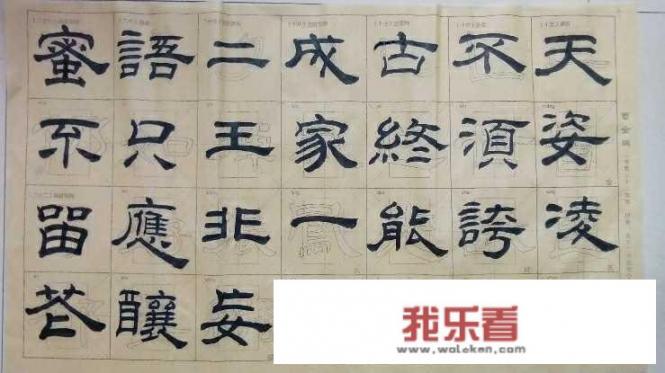 天姿凌
不須誇
古終能
成家一
二王非妄
語只應釀
蜜不留花
我乐看
www.woleken.com